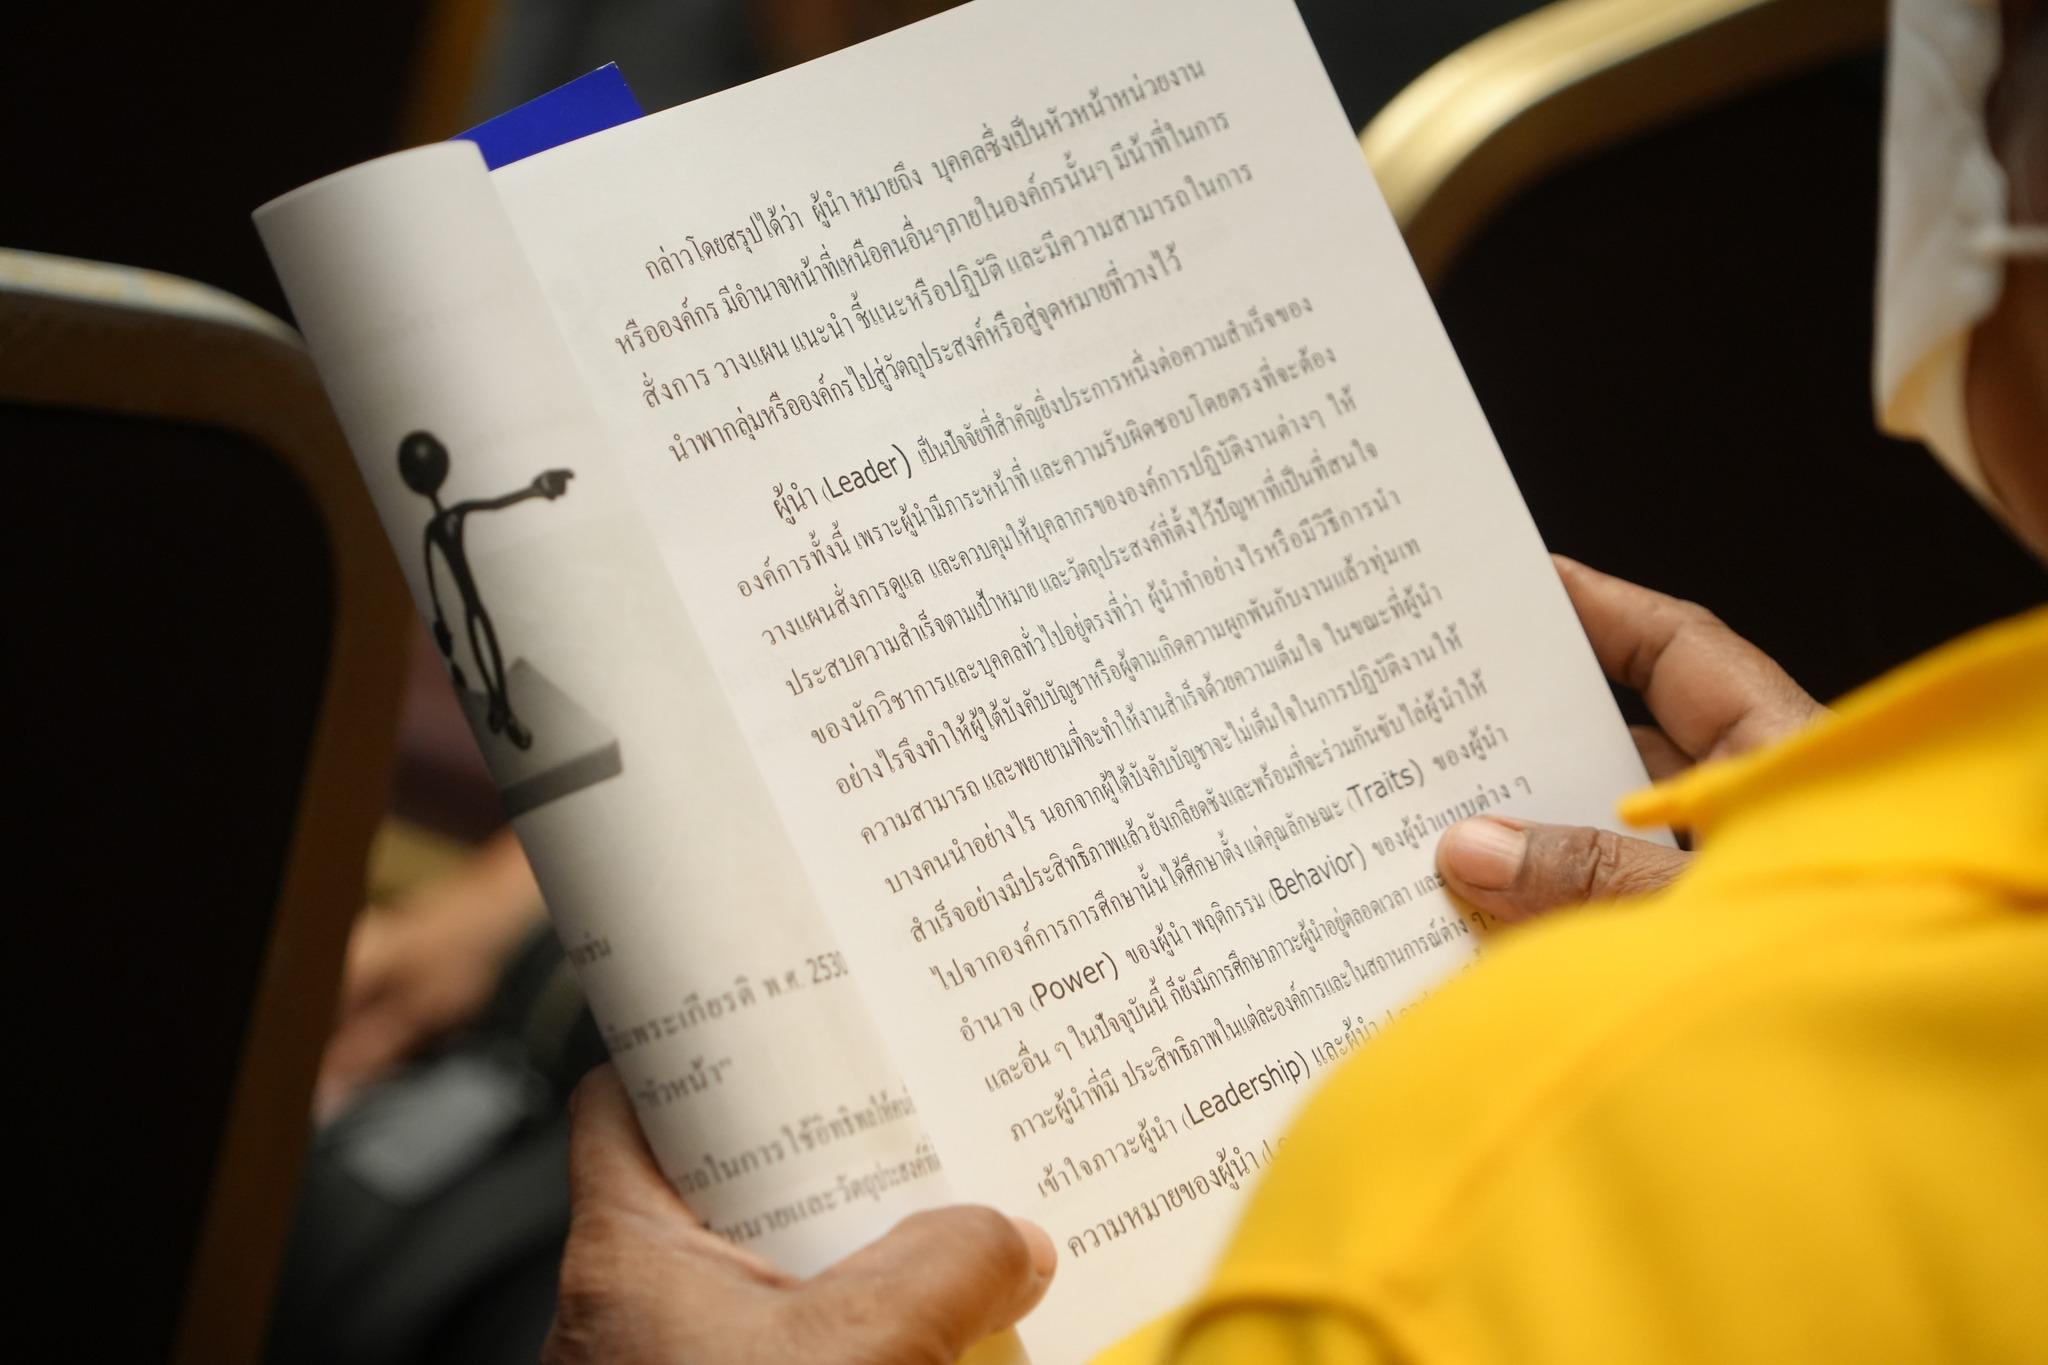 กล่าวโดยสรุปได้ว่า ผู้นำ หมายถึง บุคคลซึ่งเป็นหัวหน้าหน่วยงาน
หรือองค์กร มีอำนาจหน้าที่เหนือคนอื่นๆภายในองค์กรนั้นๆ มีน้าที่ในการ
สั่งการ วางแผน แนะนำ ชี้แนะหรือปฏิบัติ และมีความสามารถในการ
นำพากลุ่มหรือองค์กรไปสู่วัตถุประสงค์หรือสู่จุดหมายที่วางไว้
ผู้นำ (Leader) เป็นปัจจัยที่สำคัญยิ่งประการหนึ่งต่อความสำเร็จของ
องค์การทั้งนี้ เพราะผู้นำมีภาระหน้าที่ และความรับผิดชอบโดยตรงที่จะต้อง
วางแผนสั่งการดูแล และควบคุมให้บุคลากรขององค์การปฏิบัติงานต่างๆ ให้
ประสบความสำเร็จตามเป้าหมาย และวัตถุประสงค์ที่ตั้งไว้ปัญหาที่เป็นที่สนใจ
ของนักวิชาการและบุคคลทั่วไปอยู่ตรงที่ว่า ผู้นำทำอย่างไรหรือมีวิธีการนำ
อย่างไรจึงทำให้ผู้ใต้บังคับบัญชาหรือผู้ตามเกิดความผูกพันกับงานแล้วทุ่มเท
ความสามารถ และพยายามที่จะทำให้งานสำเร็จด้วยความเต็มใจ ในขณะที่ผู้นำ
บางคนนำอย่างไร นอกจากผู้ใต้บังคับบัญชาจะไม่เต็มใจในการปฏิบัติงานให้
สำเร็จอย่างมีประสิทธิภาพแล้ว ยังเกลียดชังและพร้อมที่จะร่วมกันขับไล่ผู้นำให้
ไปจากองค์การการศึกษานั้นได้ศึกษาตั้ง แต่คุณลักษณะ (Traits) ของผู้นำ
อำนาจ (Power) ของผู้นำ พฤติกรรม (Behavior) ของผู้นำแบบต่าง ๆ
และอื่น ๆ ในปัจจุบันนี้ ก็ยังมีการศึกษาภาวะผู้นำอยู่ตลอดเวลา และ
ภาวะผู้นำที่มี ประสิทธิภาพในแต่ละองค์การและในสถานการณ์ต่าง ๆ
เข้าใจภาวะผู้นำ (Leadership) และผู้นำ
ความหมายของผู้นำ
พระเกียรติ พ.ศ. 2530
"หัวหน้า"
ในการใช้อิทธิพลให้
และวัตถุประสงค์ที่